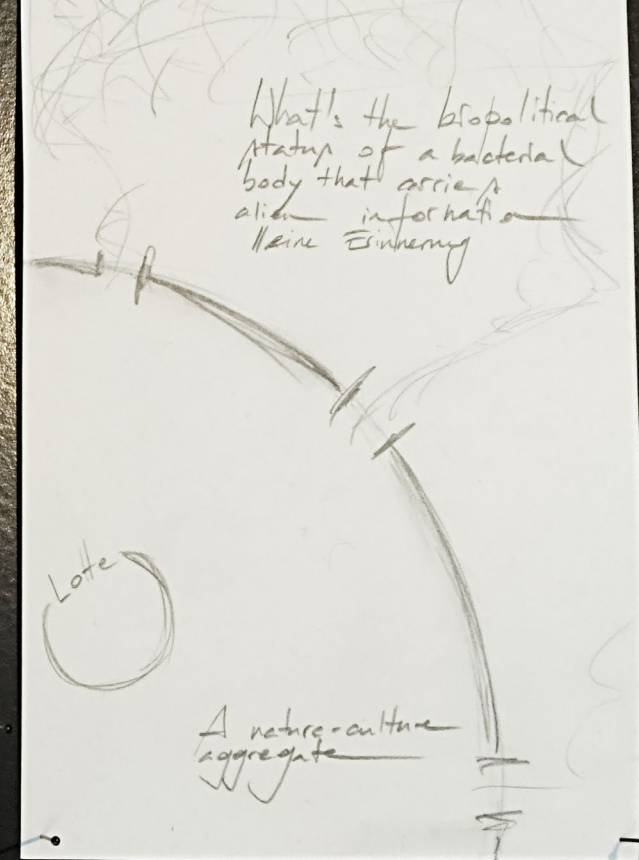 What's the biopolitical
status of a bacterial
body that carries
alien information
Meine Erinnerung
Lotte
A nature-culture
aggregate